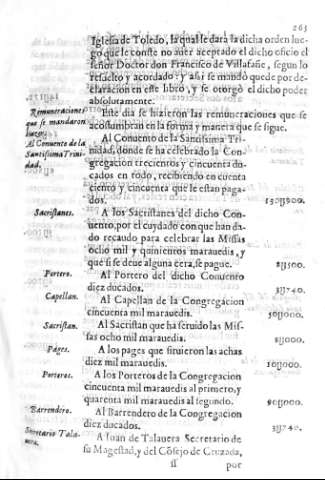 263
Iglesia de Toledo, la qual le dara la dicha orden lue-
go que le conste no auer aceptado el dicho oficio el
señor Doctor don Francisco de Villafañe, segun lo
resuelto y acordado: y assi se mandò quede por de-
claracion en este libro, y se otorgò el dicho poder
absolutamente.
Remuneraciones que se mandaron luego.
Este dia se hizieron las remuneraciones que se
acostumbran en la forma y manera que se sigue.
Al Conuento de la Santissima Trinidad.
Al Conuento de la Santissima Tri-
nidad, donde se ha celebrado la Con-
gregacion trecientos y cincuenta du-
cados en todo, recibiendo en cuenta
ciento y cincuenta que le estan paga-
dos. 131y1500.
Sacristanes.
A los Sacristanes del dicho Con-
uento, por el cuydado con que han da-
do recaudo para celebrar las Missas
ocho mil y quinientos marauedis, y
que si se deue alguna cera, se pague. 8y500.
Portero.
Al Portero del dicho Conuento
diez ducados. 3y740.
Capellan.
Al Capellan de la Congregacion
cincuenta mil marauedis. 50y000.
Sacristan.
Al Sacristan que ha seruido las Mis-
sas ocho mil marauedis. 8y000.
Pages.
A los pages que siruieron las achas
diez mil marauedis. 10y000.
Porteros.
A los Porteros de la Congregacion
cincuenta mil marauedis al primero, y
quarenta mil marauedis al segundo. 90y000.
Barrendero.
Al Barrendero de la Congregacion
diez ducados. 3y740.
Secretario Talauera.
A Iuan de Talauera Secretario de
su Magestad, y del Cõsejo de Cruzada,
ss por